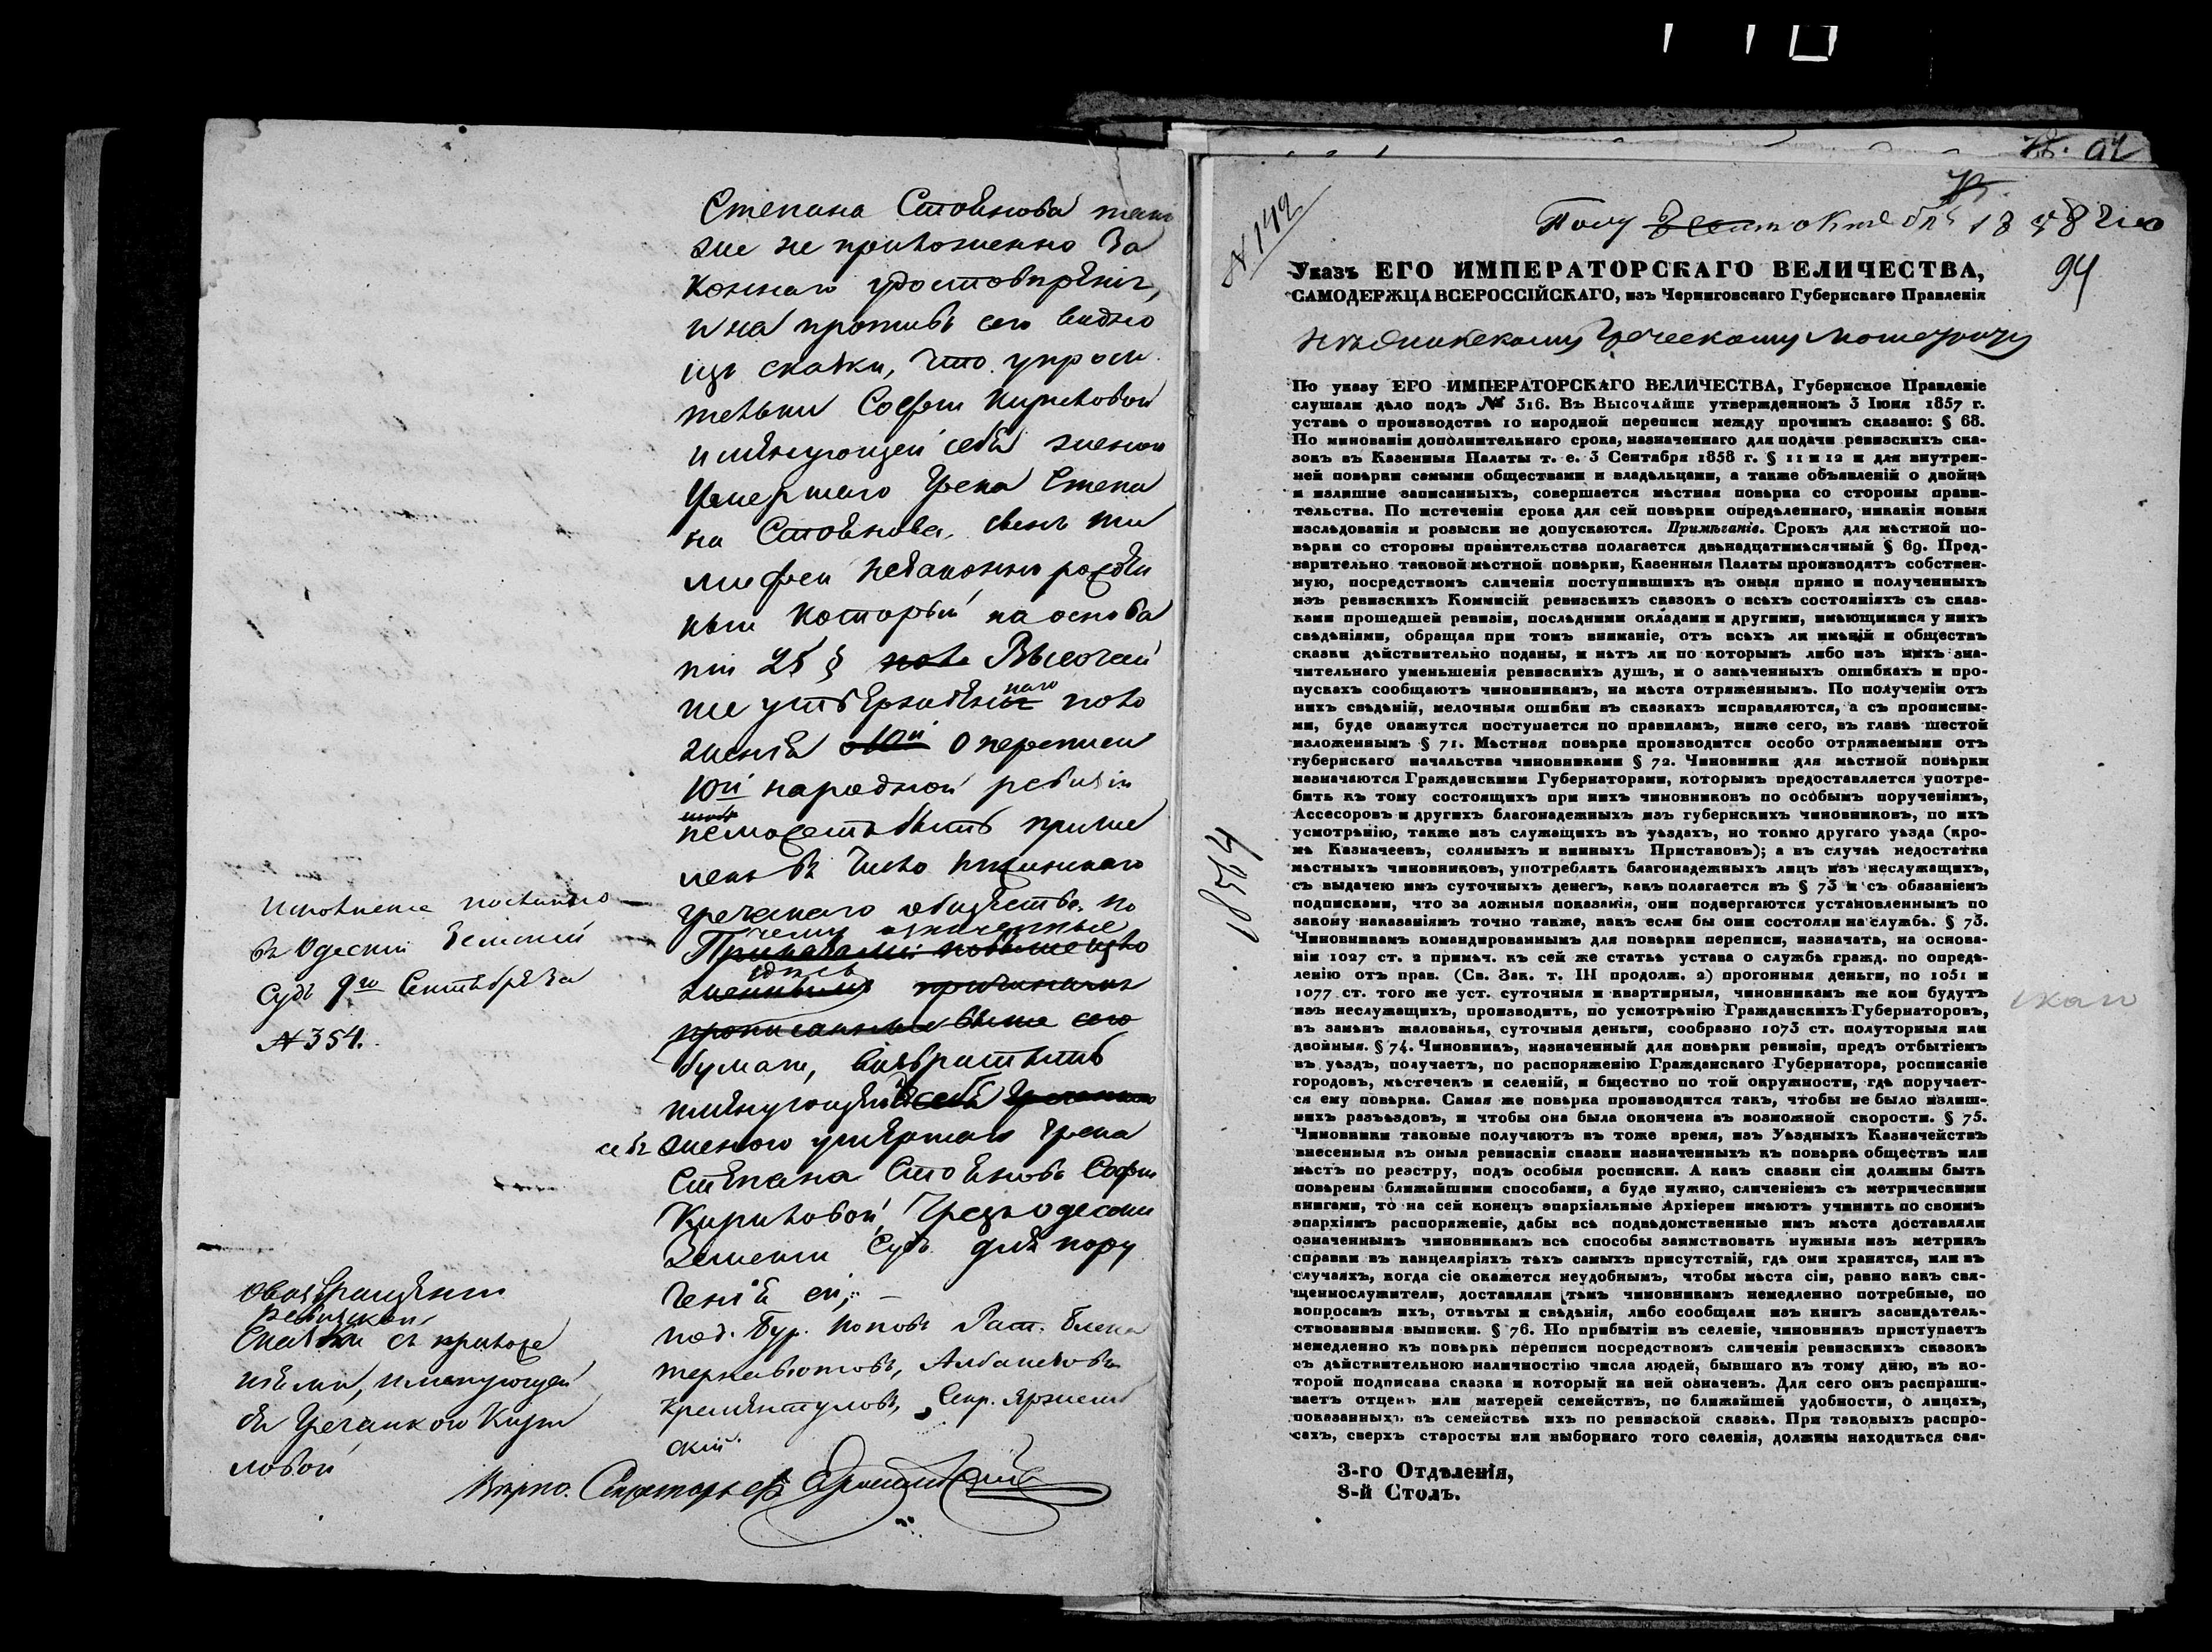 Степана Стоянова так
же не приложенно за
коннаго удостовѣренія,
и на противъ сего видно
изъ сказки, что у проси
тельки Софіи Кириловой
имянующей себя женою
Умершаго Грека Степа
на Стоянова, сынъ Ти
мофей незаконно рожден
ный который на основа
ніи 25 § Высочай
ше утвержденнаго поло
женія о 10й О переписи
10й народной ревизіи
неможетъ быть причи
ленъ въ число Нѣжинскаго
греческаго общества, по
чему означенные
здѣсь
прописанные выше сего
бумаги, возвратить
имянующей
себя женою умершаго Грека
Степана Стоянова Софіи
Кириловой, Чрезъ Одескій
Земскій Судъ для вору
ченія ей, –
под. Бур. Поповъ Рат.
Албанековъ
Секр. Яржем
скій.
Исполненіе послано
въ Одескій Земскій
Судъ 9го Сентября За
№ 354.
О возвращеніи
Ревизской
Сказки съ приложе
ніями, имянующей
ся Гречанкою Кири
ловой
Вѣрно. Секретарь
94
№ 142
Полу Октября 1858 Года
94
Указъ ЕГО ИМПЕРАТОРСКАГО ВЕЛИЧЕСТВА,
САМОДЕРЖЦА ВСЕРОССІЙСКАГО, изъ Черниговскаго Губернскаго Правленія
Нѣжинскому Греческому Магистрату
По указу ЕГО ИМПЕРАТОРСКАГО ВЕЛИЧЕСТВА, Губернское Правленіе
слушали дѣло подъ № 316. Въ Высочайше утвержденномъ 3 Іюня 1857 г.
уставѣ о производствѣ 10 народной переписи между прочимъ сказано: § 68.
По минованіи дополнительнаго срока, назначеннаго для подачи ревизскихъ ска-
зокъ въ Казенныя Палаты т. е. 3 Сентября 1858 г. § 11 и 12 и для внутрен-
ней повѣрки самыми обществами и владѣльцами, а также объявленій о двойнѣ
и излишне записанныхъ, совершается мѣстная повѣрка со стороны прави-
тельства. По истеченіи срока для сей повѣрки опредѣленнаго, никакія новыя
изслѣдованія и розыски не допускаются. Примѣчаніе. Срокъ для мѣстной по-
вѣрки со стороны правительства полагается двѣнадцатимѣсячный § 69. Пред-
варительно таковой мѣстной повѣрки, Казенныя Палаты производятъ собствен-
ную, посредствомъ сличенія поступившихъ въ оныя прямо и полученныхъ
изъ ревизскихъ Коммисій ревизскихъ сказокъ о всѣхъ состояніяхъ съ сказ-
ками прошедшей ревизіи, послѣдними окладами и другими, имѣющимися у нихъ
свѣдѣніями, обращая при томъ вниманіе, отъ всѣхъ ли имѣній и обществъ
сказки дѣйствительно поданы, и нѣтъ ли по которымъ либо изъ нихъ зна-
чительнаго уменьшенія ревизскихъ душъ, и о замѣченныхъ ошибкахъ и про-
пускахъ сообщаютъ чиновникамъ, на мѣста отряженнымъ. По полученіи отъ
нихъ свѣдѣній, мелочныя ошибки въ сказкахъ исправляются, а съ прописны-
ми, буде окажутся поступается по правиламъ, ниже сего, въ главѣ шестой
изложеннымъ § 71. Мѣстная повѣрка производится особо отряжаемыми отъ
губернскаго начальства чиновниками § 72. Чиновники для мѣстной повѣрки
назначаются Гражданскими Губернаторами, которымъ предоставляется употре-
бить къ тому состоящихъ при нихъ чиновниковъ по особымъ порученіямъ,
Ассесоровъ и другихъ благонадежныхъ изъ губернскихъ чиновниковъ, по ихъ
усмотрѣнію, также изъ служащихъ въ уѣздахъ, но токмо другаго уѣзда (кро-
мѣ Казначеевъ, соляныхъ и винныхъ Приставовъ); а въ случаѣ недостатка
мѣстныхъ чиновниковъ, употреблять благонадежныхъ лицъ изъ неслужащихъ,
съ выдачею имъ суточныхъ денегъ, какъ полагается въ § 73 и съ обязаніемъ
подписками, что за ложныя показанія, они подвергаются установленнымъ по
закону наказаніямъ точно также, какъ если бы они состояли на службѣ. § 73.
Чиновникамъ командированнымъ для повѣрки переписи, назначать, на основа-
ніи 1027 ст. 2 примѣч. къ сей же статьѣ устава о службѣ гражд. по опредѣ-
ленію отъ прав. (Св. Зак. т. III продолж. 2) прогонныя деньги, по 1051 и
1077 ст. того же уст. суточныя и квартирныя, чиновникамъ же кои будутъ
изъ неслужащихъ, производить, по усмотрѣнію Гражданскихъ Губернаторовъ,
въ замѣнъ жалованья, суточныя деньги, сообразно 1073 ст. полуторныя или
двойныя. § 74. Чиновникъ, назначенный для повѣрки ревизіи, предъ отбытіемъ
въ уѣздъ, получаетъ, по распоряженію Гражданскаго Губернатора, росписаніе
городовъ, мѣстечекъ и селеній, и бщество по той окружности, гдѣ поручает-
ся ему повѣрка. Самая же повѣрка производится такъ, чтобы не было излиш-
нихъ разъѣздовъ, и чтобы она была окончена въ возможной скорости. § 75.
Чиновники таковые получаютъ въ тоже время, изъ Уѣздныхъ Казначействъ
внесенныя въ оныя ревизскія сказки назначенныхъ къ повѣркѣ обществъ или
мѣстъ по реэстру, подъ особыя росписки. А какъ сказки сіи должны быть
повѣрены ближайшими способами, а буде нужно, сличеніемъ съ метрическими
книгами, то на сей конецъ эпархіальные Архіереи имѣютъ учинить по своимъ
эпархіямъ распоряженіе, дабы всѣ подвѣдомственные имъ мѣста доставляли
означеннымъ чиновникамъ всѣ способы заимствовать нужныя изъ метрикъ
справки въ канцеляріяхъ тѣхъ самыхъ присутствій, гдѣ они хранятся, или въ
случаяхъ, когда сіе окажется неудобнымъ, чтобы мѣста сіи, равно какъ свя-
щеннослужители, доставляли тѣмъ чиновникамъ немедленно потребные, по
вопросамъ ихъ, отвѣты и свѣдѣнія, либо сообщали изъ книгъ засвидѣтель-
ствованныя выписки. § 76. По прибытіи въ селеніе, чиновникъ приступаетъ
немедленно къ повѣркѣ переписи посредствомъ сличенія ревизскихъ сказокъ
съ дѣйствительною наличностію числа людей, бывшаго къ тому дню, въ ко-
торой подписана сказка и который на ней означенъ. Для сего онъ распраши-
ваетъ отцевъ или матерей семействъ, по ближайшей удобности, о лицахъ,
показанныхъ въ семействѣ ихъ по ревизской сказкѣ. При таковыхъ распро-
сахъ, сверхъ старосты или выборнаго того селенія, должны находиться свя-
3-го Отдѣленія,
8-й Столъ.
18584
скаго